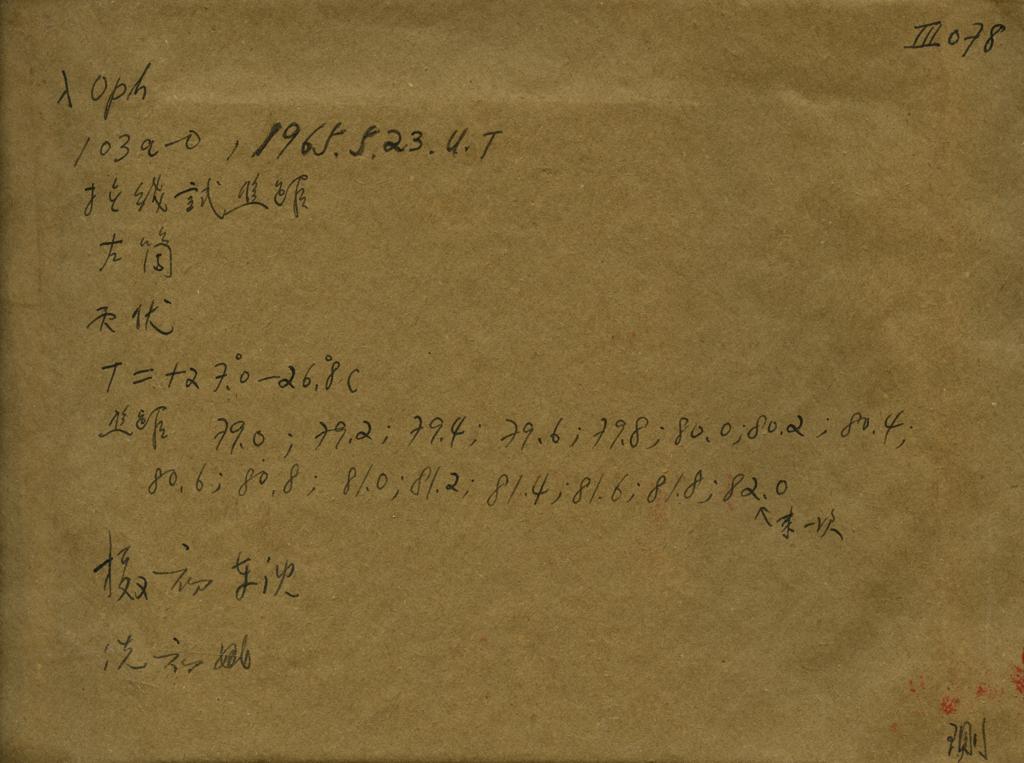 III 078
λ Oph
103a-O, 1965.5.23. U.T
拉线試焦距
左筒
天优
T = +27.°0 - 26.°8 C
焦距 79.0; 79.2; 79.4; 79.6; 79.8; 80.0; 80.2; 80.4;
80.6; 80.8; 81.0; 81.2; 81.4; 81.6; 81.8; 82.0
↑末一次
初
初
测